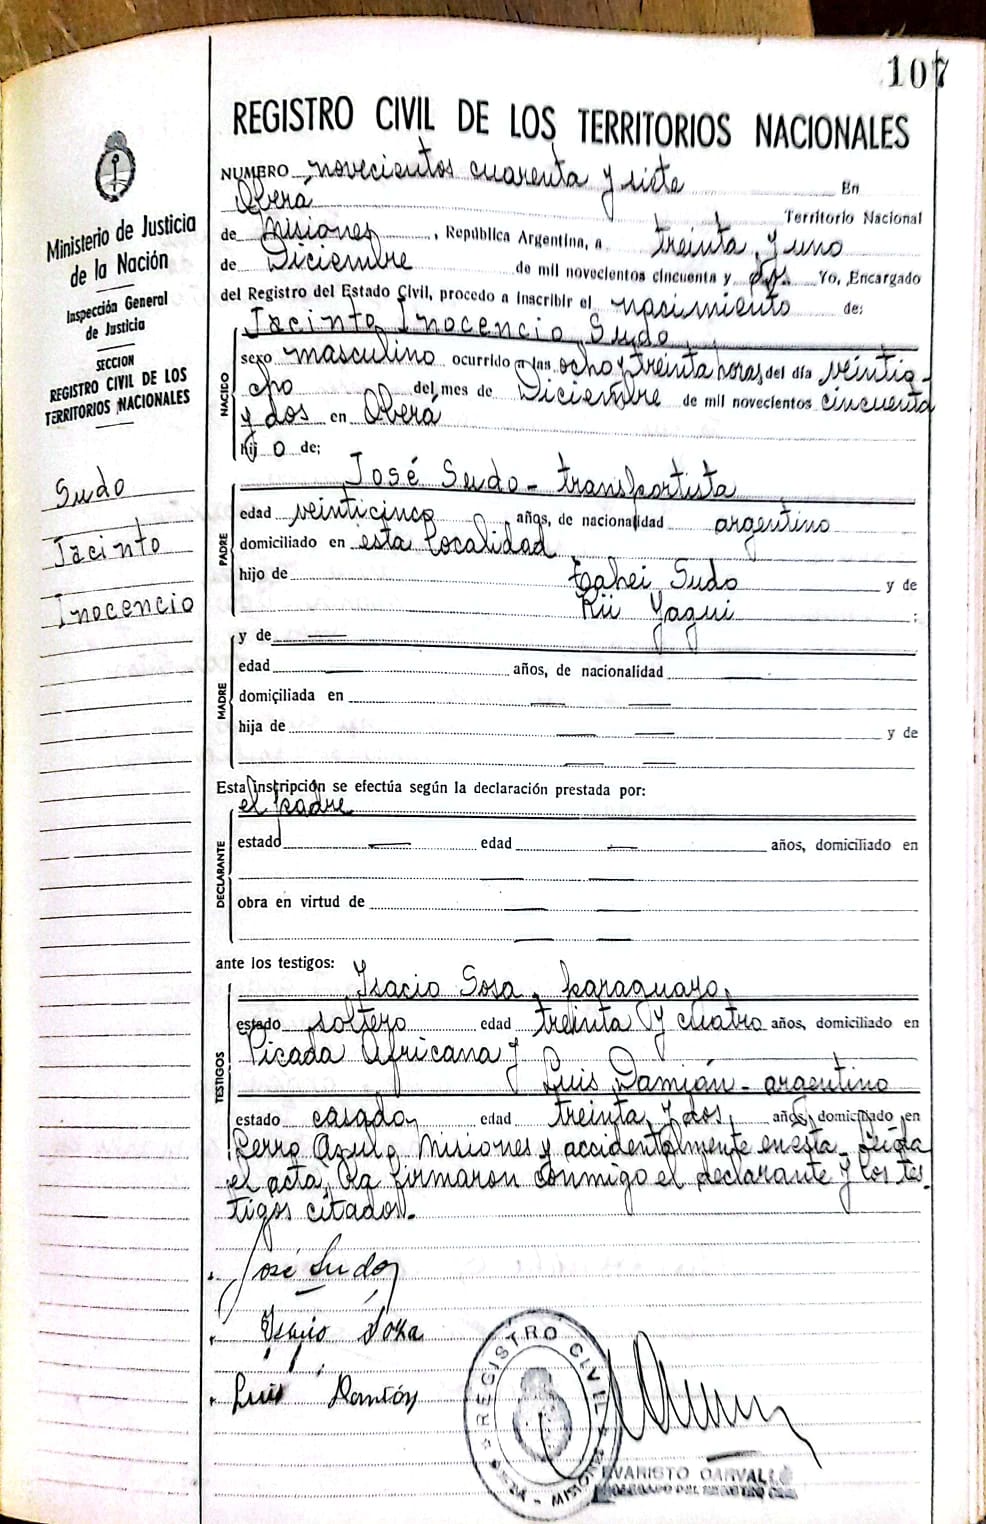 107
REGISTRO CIVIL DE LOS TERRITORIOS NACIONALES
Ministerio de Justicia
de la Nación
Inspección General
de Justicia
SECCION
REGISTRO CIVIL DE LOS
TERRITORIOS NACIONALES
Sudo
Jacinto
Inocencio
NUMERO novecientos cuarenta y siete En
Oberá Territorio Nacional
de Misiones, República Argentina, a treinta y uno
de Diciembre de mil novecientos cincuenta y dos Yo, Encargado
del Registro del Estado Civil, procedo a inscribir el nacimiento de:
Jacinto Inocencio Sudo
NACIDO
sexo masculino ocurrido a las ocho y treinta horas del día veintio-
cho del mes de Diciembre de mil novecientos cincuenta
y dos en Oberá
hijo de:
José Sudo - transportista
PADRE
edad veinticinco años, de nacionalidad argentino
domiciliado en esta localidad
hijo de Sudo y de
Rii Yagui ;
MADRE
y de —
edad — años, de nacionalidad —
domiciliada en — —
hija de — — y de
— —
Esta inscripción se efectúa según la declaración prestada por:
el padre
DECLARANTE
estado — edad — años, domiciliado en
— —
obra en virtud de — —
— —
ante los testigos:
Isacio Sosa, paraguayo,
TESTIGOS
estado soltero edad treinta y cuatro años, domiciliado en
Picada Africana y
Luis Damián - argentino
estado casado, edad treinta y dos, años, domiciliado en
Cerro Azul, Misiones y accidentalmente en esta. Leída
el acta, la firmaron conmigo el declarante y los tes-
tigos citados.-
José Sudo
Isacio Sosa
Luis
REGISTRO CIVIL
MISIONES
EVARISTO CARVALLO
ENCARGADO DEL REGISTRO CIVIL